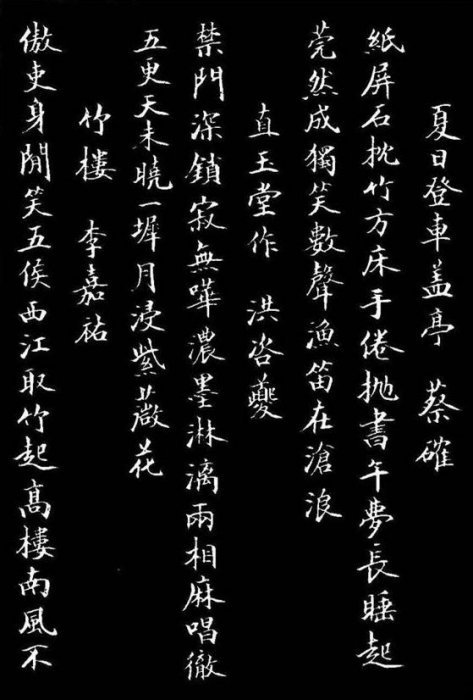 夏日登車盖亭 蔡確
紙屏石枕竹方床手倦抛書午夢長睡起
莞然成獨笑數聲漁笛在滄浪
直玉堂作 洪咨夔
禁門深鎖寂無嘩濃墨淋漓兩相麻唱徹
五更天未曉一墀月浸紫薇花
竹樓 李嘉祐
傲吏身閒笑五侯西江取竹起高樓南風不